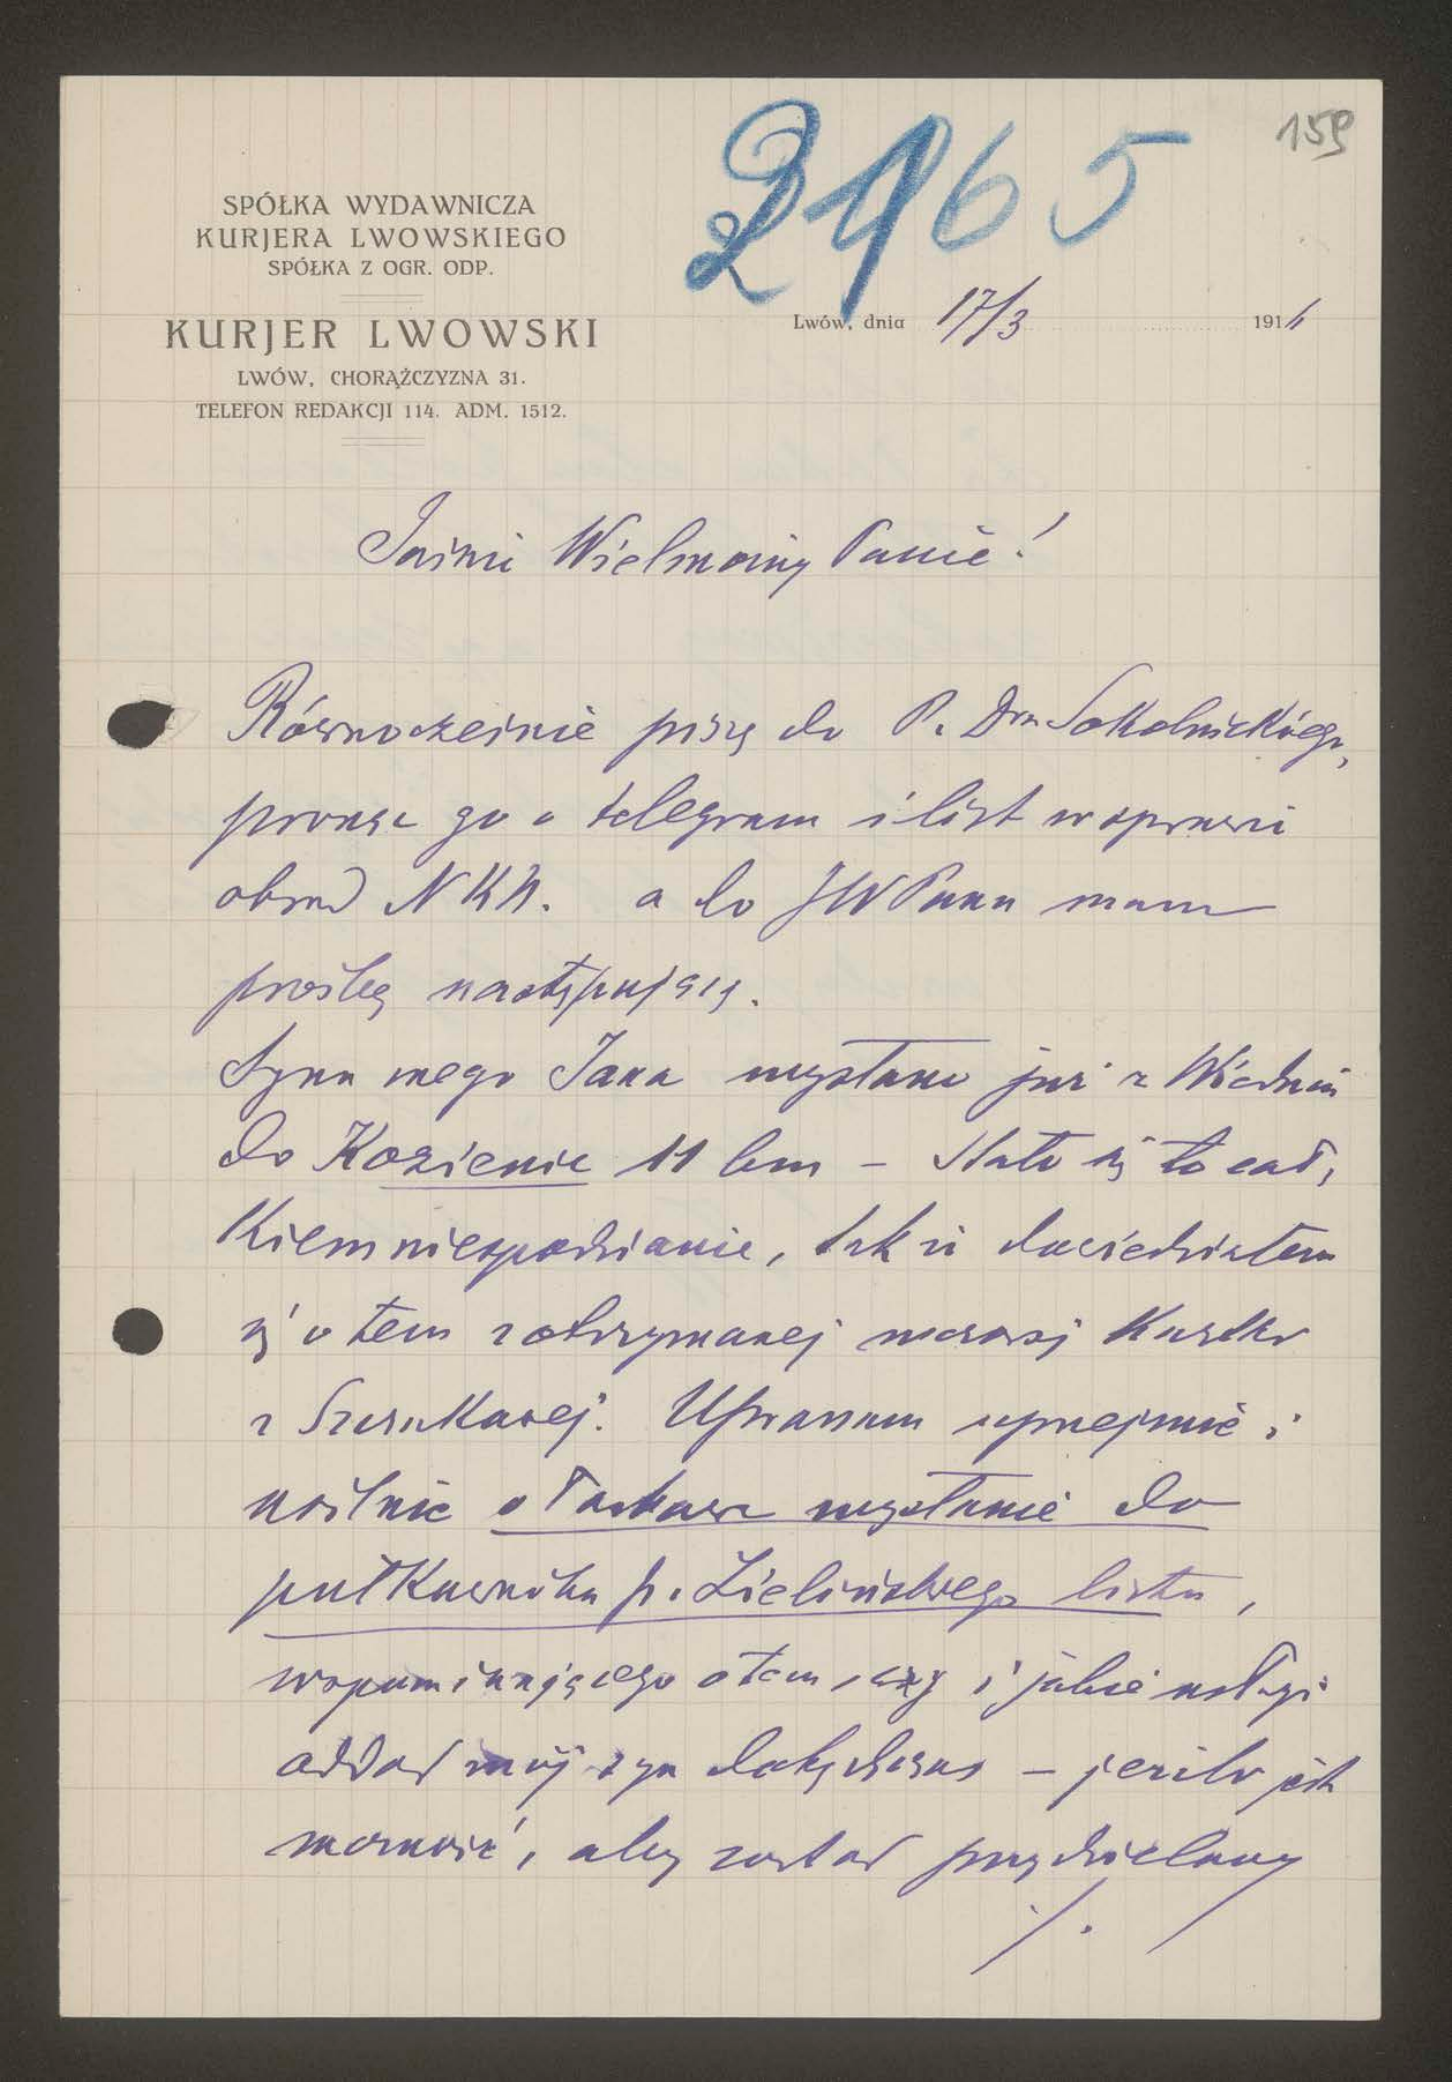 159
2165
SPÓŁKA WYDAWNICZA
KURJERA LWOWSKIEGO
SPÓŁKA Z OGR. ODP.
KURJER LWOWSKI
LWÓW, CHORĄŻCZYZNA 31.
TELEFON REDAKCJI 114. ADM. 1512.
Lwów, dnia 17/3 1916
Jaśnie Wielmożny Panie!
Równocześnie piszę do P. Dra Sokolnickiego,
prosząc go o telegram i list w sprawie
obrad NKN. a do JWPana mam
prośbę następującą.
Syna mego Jana wysłano już z Wiednia
do Kozienic 11 bm – Stało się to cał,
kiem niespodzianie, tak iż dowiedziałem
się o tem z otrzymanej wczoraj kartki
z. Upraszam uprzejmie i
usilnie o łaskawe wysłanie do
pułkownika p. Zielińskiego listu,
wspominającego o tem, czy i jakie usługi
oddał mój syn dotychczas – jeżeli jest
możność, aby został przydzielony
./.